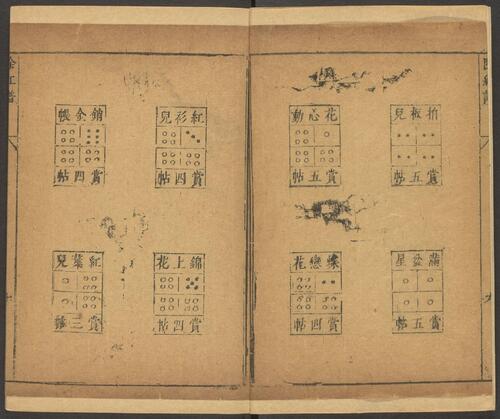 拍板兒
賞五帖
滿盆星
賞五帖
花心動
賞五帖
蝶戀花
賞四帖
紅衫兒
賞四帖
錦上花
賞四帖
銷金帳
賞四帖
紅葉兒
賞三帖